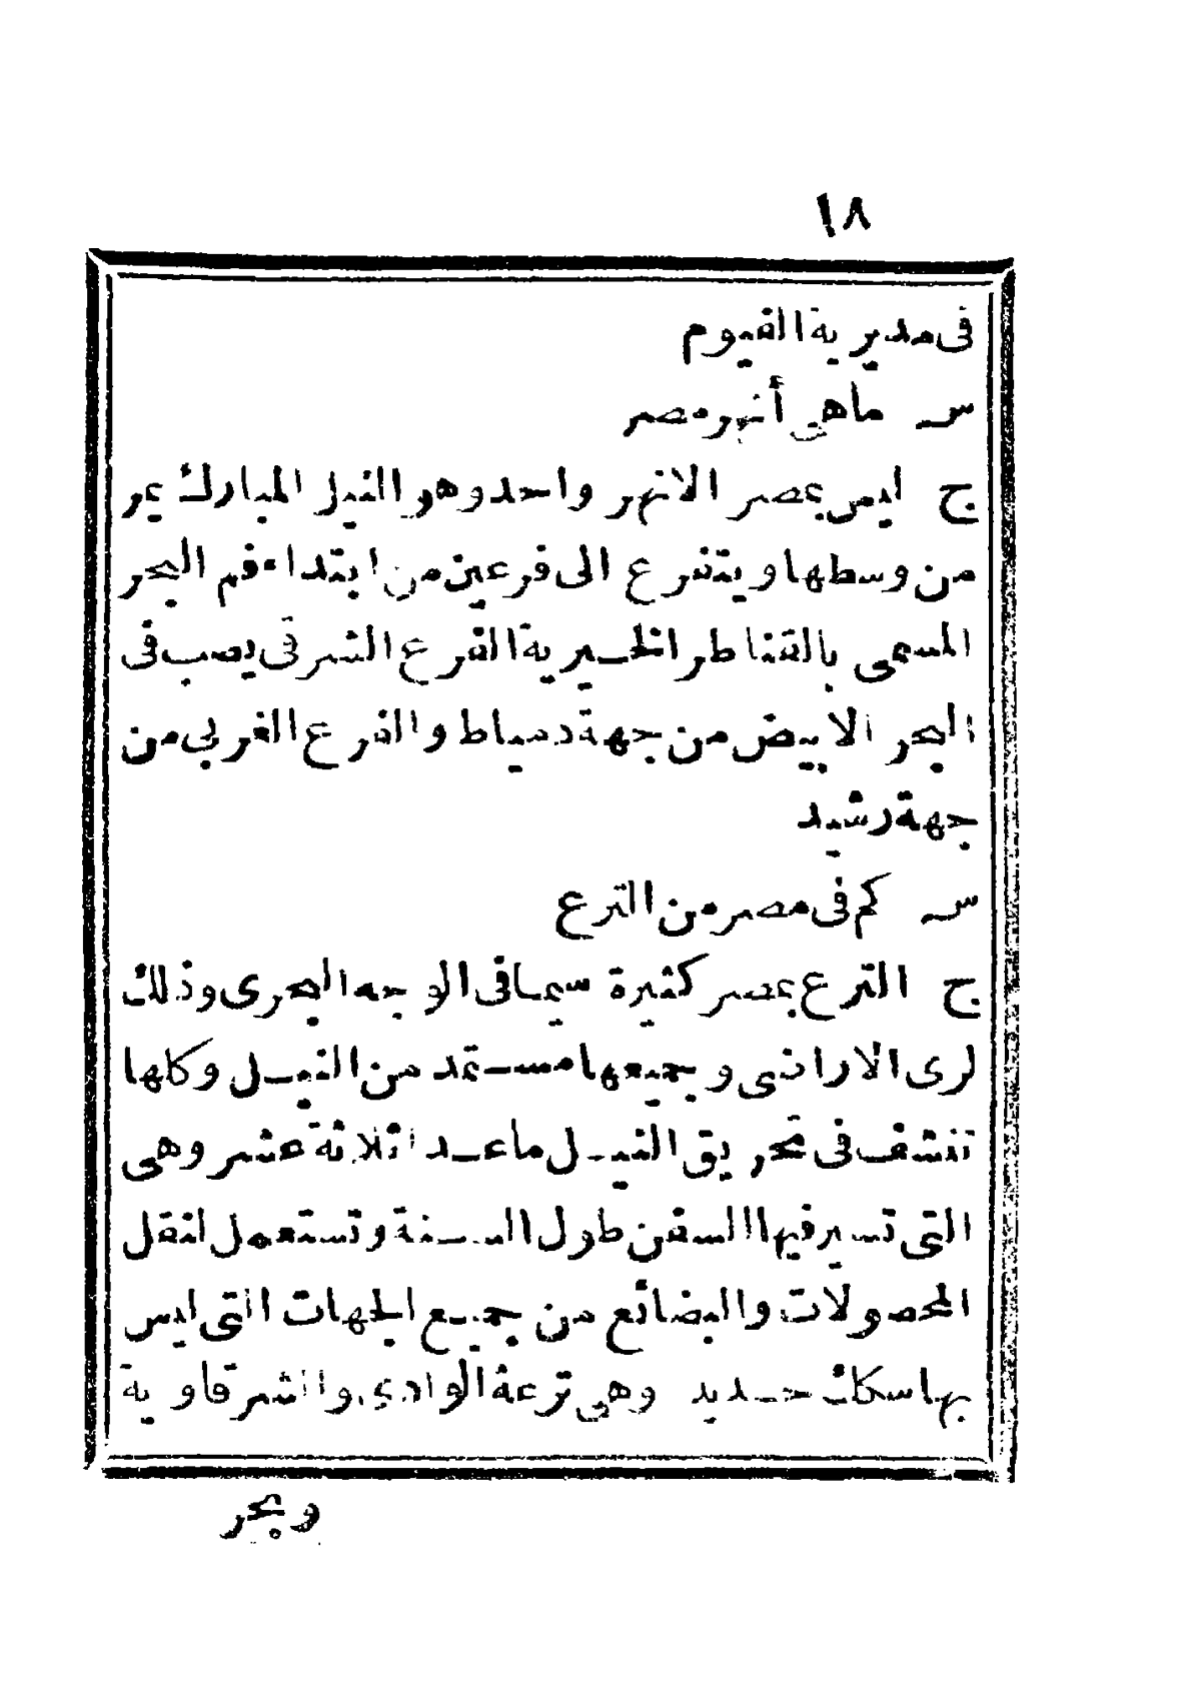 ١٨
فى مديرية الفيوم
س ماهى أنهر مصر
ج ليس بمصر الا نهر واحد وهو النيل المبارك يمر
من وسطها ويتفرع الى فرعين من ابتداء فم البحر
المسمى بالقناطر الخيرية الفرع الشرقى يصب فى
البحر الابيض من جهة دمياط والفرع الغربى من
جهة رشيد
س كم فى مصر من الترع
ج الترع بمصر كثيرة سيما فى الوجه البحرى وذلك
لرى الاراضى وجميعها مستمد من النيل وكلها
تنشف فى تحريق النيل ماعدا ثلاثة عشر وهى
التى تسير فيها السفن طول السنة وتستعمل لنقل
المحصولات والبضائع من جميع الجهات التى ليس
بها سكك حديد وهى ترعة الوادى والشرقاوية
وبحر